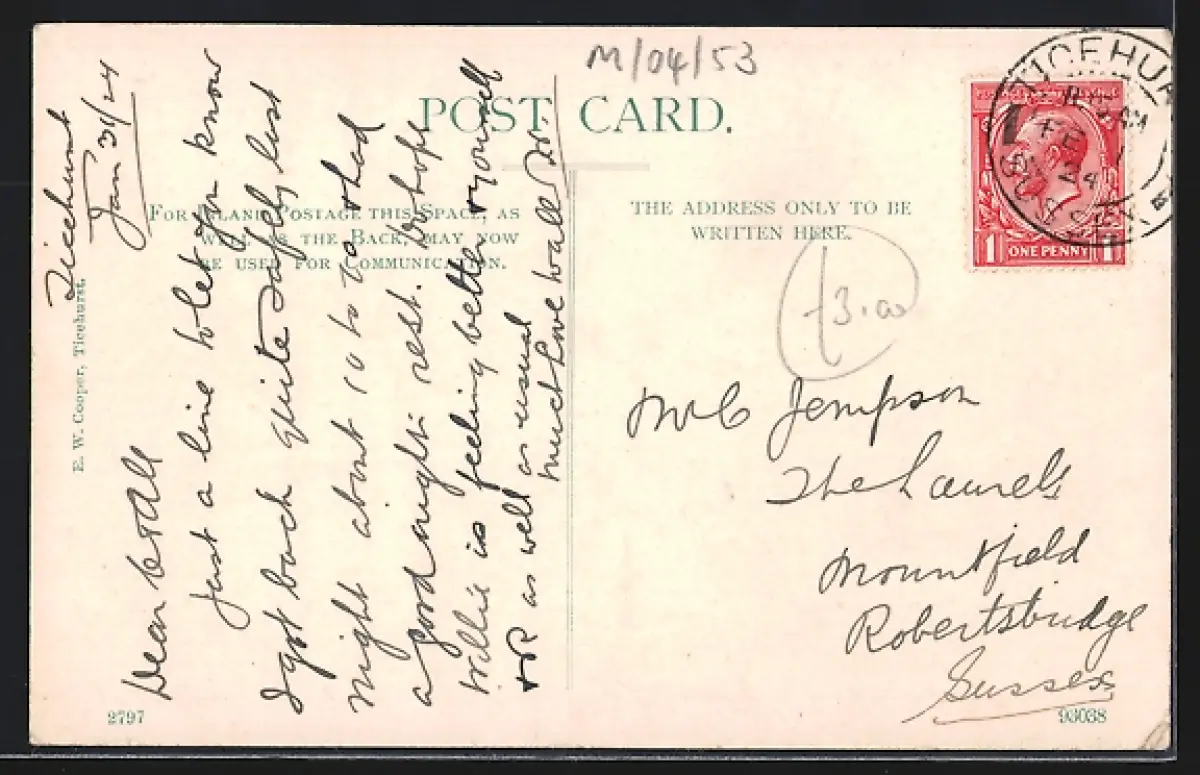 M/04/53
POST CARD.
FOR INLAND POSTAGE THIS SPACE, AS
WELL AS THE BACK, MAY NOW
BE USED FOR COMMUNICATION.
THE ADDRESS ONLY TO BE
WRITTEN HERE.
E. W. Cooper, Ticehurst.
Ticehurst
Jan 31/24
Dear C & All
Just a line to let you know
I got back quite safely last
night about 10 to 10 & had
a good nights rest. Do hope
Willie is feeling better & yourself
& R as well as usual
much love to all
TICEHURST
FE 1
24
SUSSEX
1 ONE PENNY 1
3.00
Mr C Jempson
The Laurels
Mountfield
Robertsbridge
Sussex
2797
93038